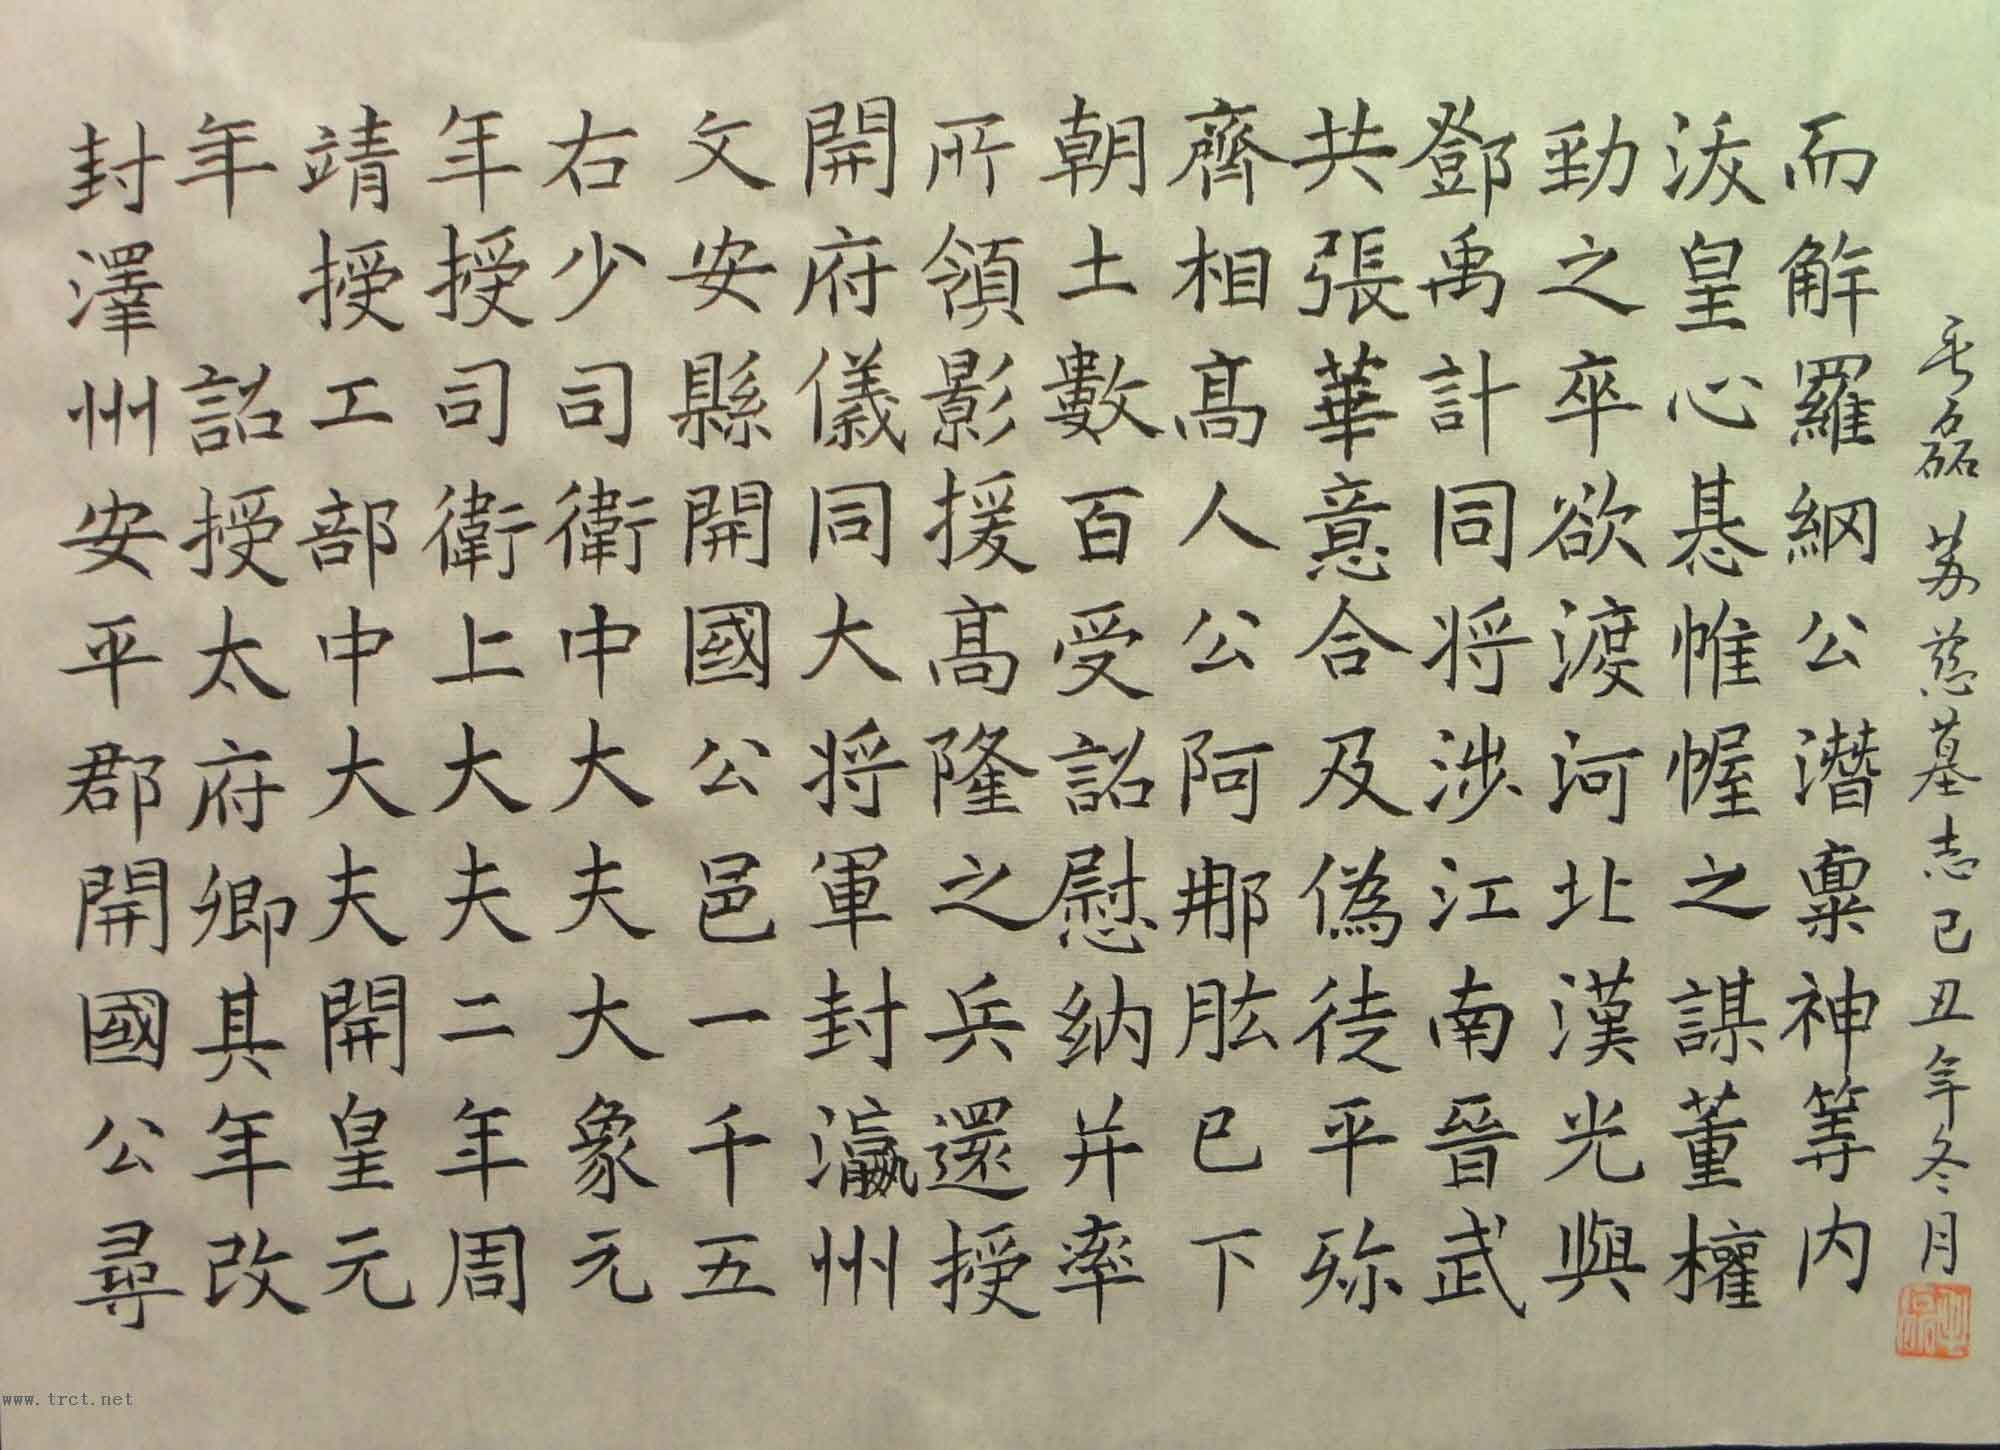 磊 苏慈墓志 己丑年冬月
而解羅綱公潛稟神等内
沃皇心惎帷幄之謀董權
勁之卒欲渡河北漢光與
鄧禹計同将涉江南晉武
共張華意合及偽徒平殄
齊相髙人公阿那肱已下
朝土數百受詔慰纳并率
所領影援髙隆之兵還授
開府儀同大将軍封瀛州
文安縣開國公邑一千五
右少司衛中大夫大象元
年授司衛上大夫二年周
靖授工部中大夫開皇元
年 詔授太府卿其年改
封澤州安平郡開國公尋
www.trct.net